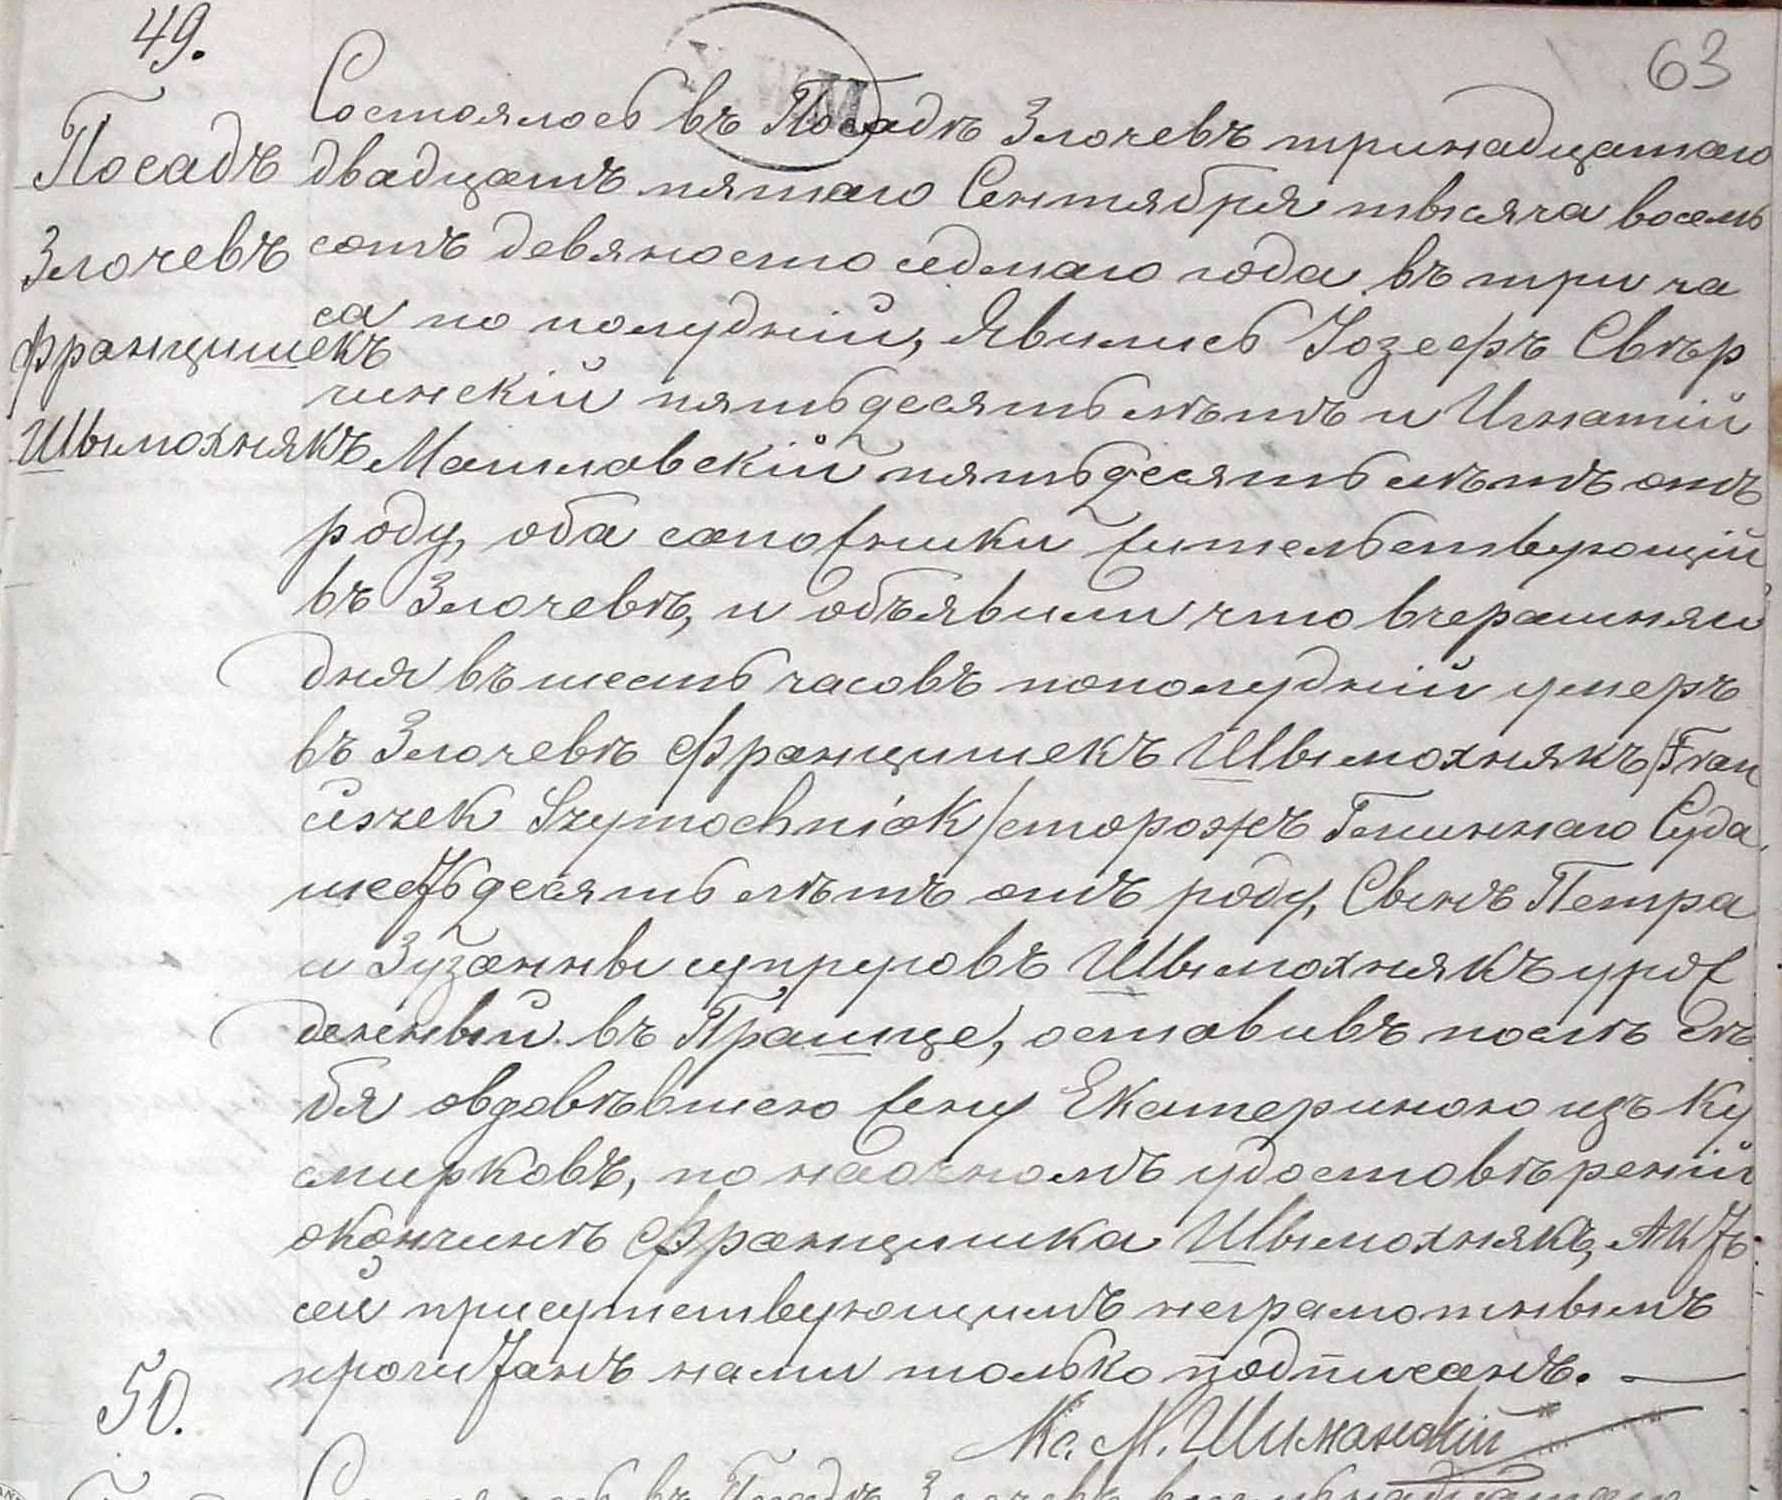 49.
63
Посадъ
Злочевъ
Францишекъ
Шымохнякъ
Состоялось въ Посадѣ Злочевъ тринадцатаго
двадцать пятаго Сентября тысяча восемь
сотъ девяносто седмаго года въ три ча
са по полудній, Явились Іозефъ Свѣр
чинскій пятьдесять лѣтъ и Игнатій
Машлавскій пятьдесять лѣтъ отъ
роду, оба сапожники жительствующій
въ Злочевѣ, и объявили что вчерашняи
дня въ шесть часовъ пополудній умеръ
въ Злочевѣ Францишекъ Шымохнякъ /Fran
ciszek Szymochniak/ сторожъ Гминнаго Суда,
шестьдесять лѣтъ отъ роду, Сынъ Петра
и Зузанны супруговъ Шымохнякъ урож
денный въ Прашце, оставивъ послѣ се
бя овдовѣвшею жену Екатериною изъ Ку
смирковъ, по наочномъ удостовѣреній
окончинѣ Францишка Шымохнякъ, Актъ
сей присутствующимъ неграмотнымъ
прочитанъ нами только подписанъ. —
Кс. М. Шиманскій
50.